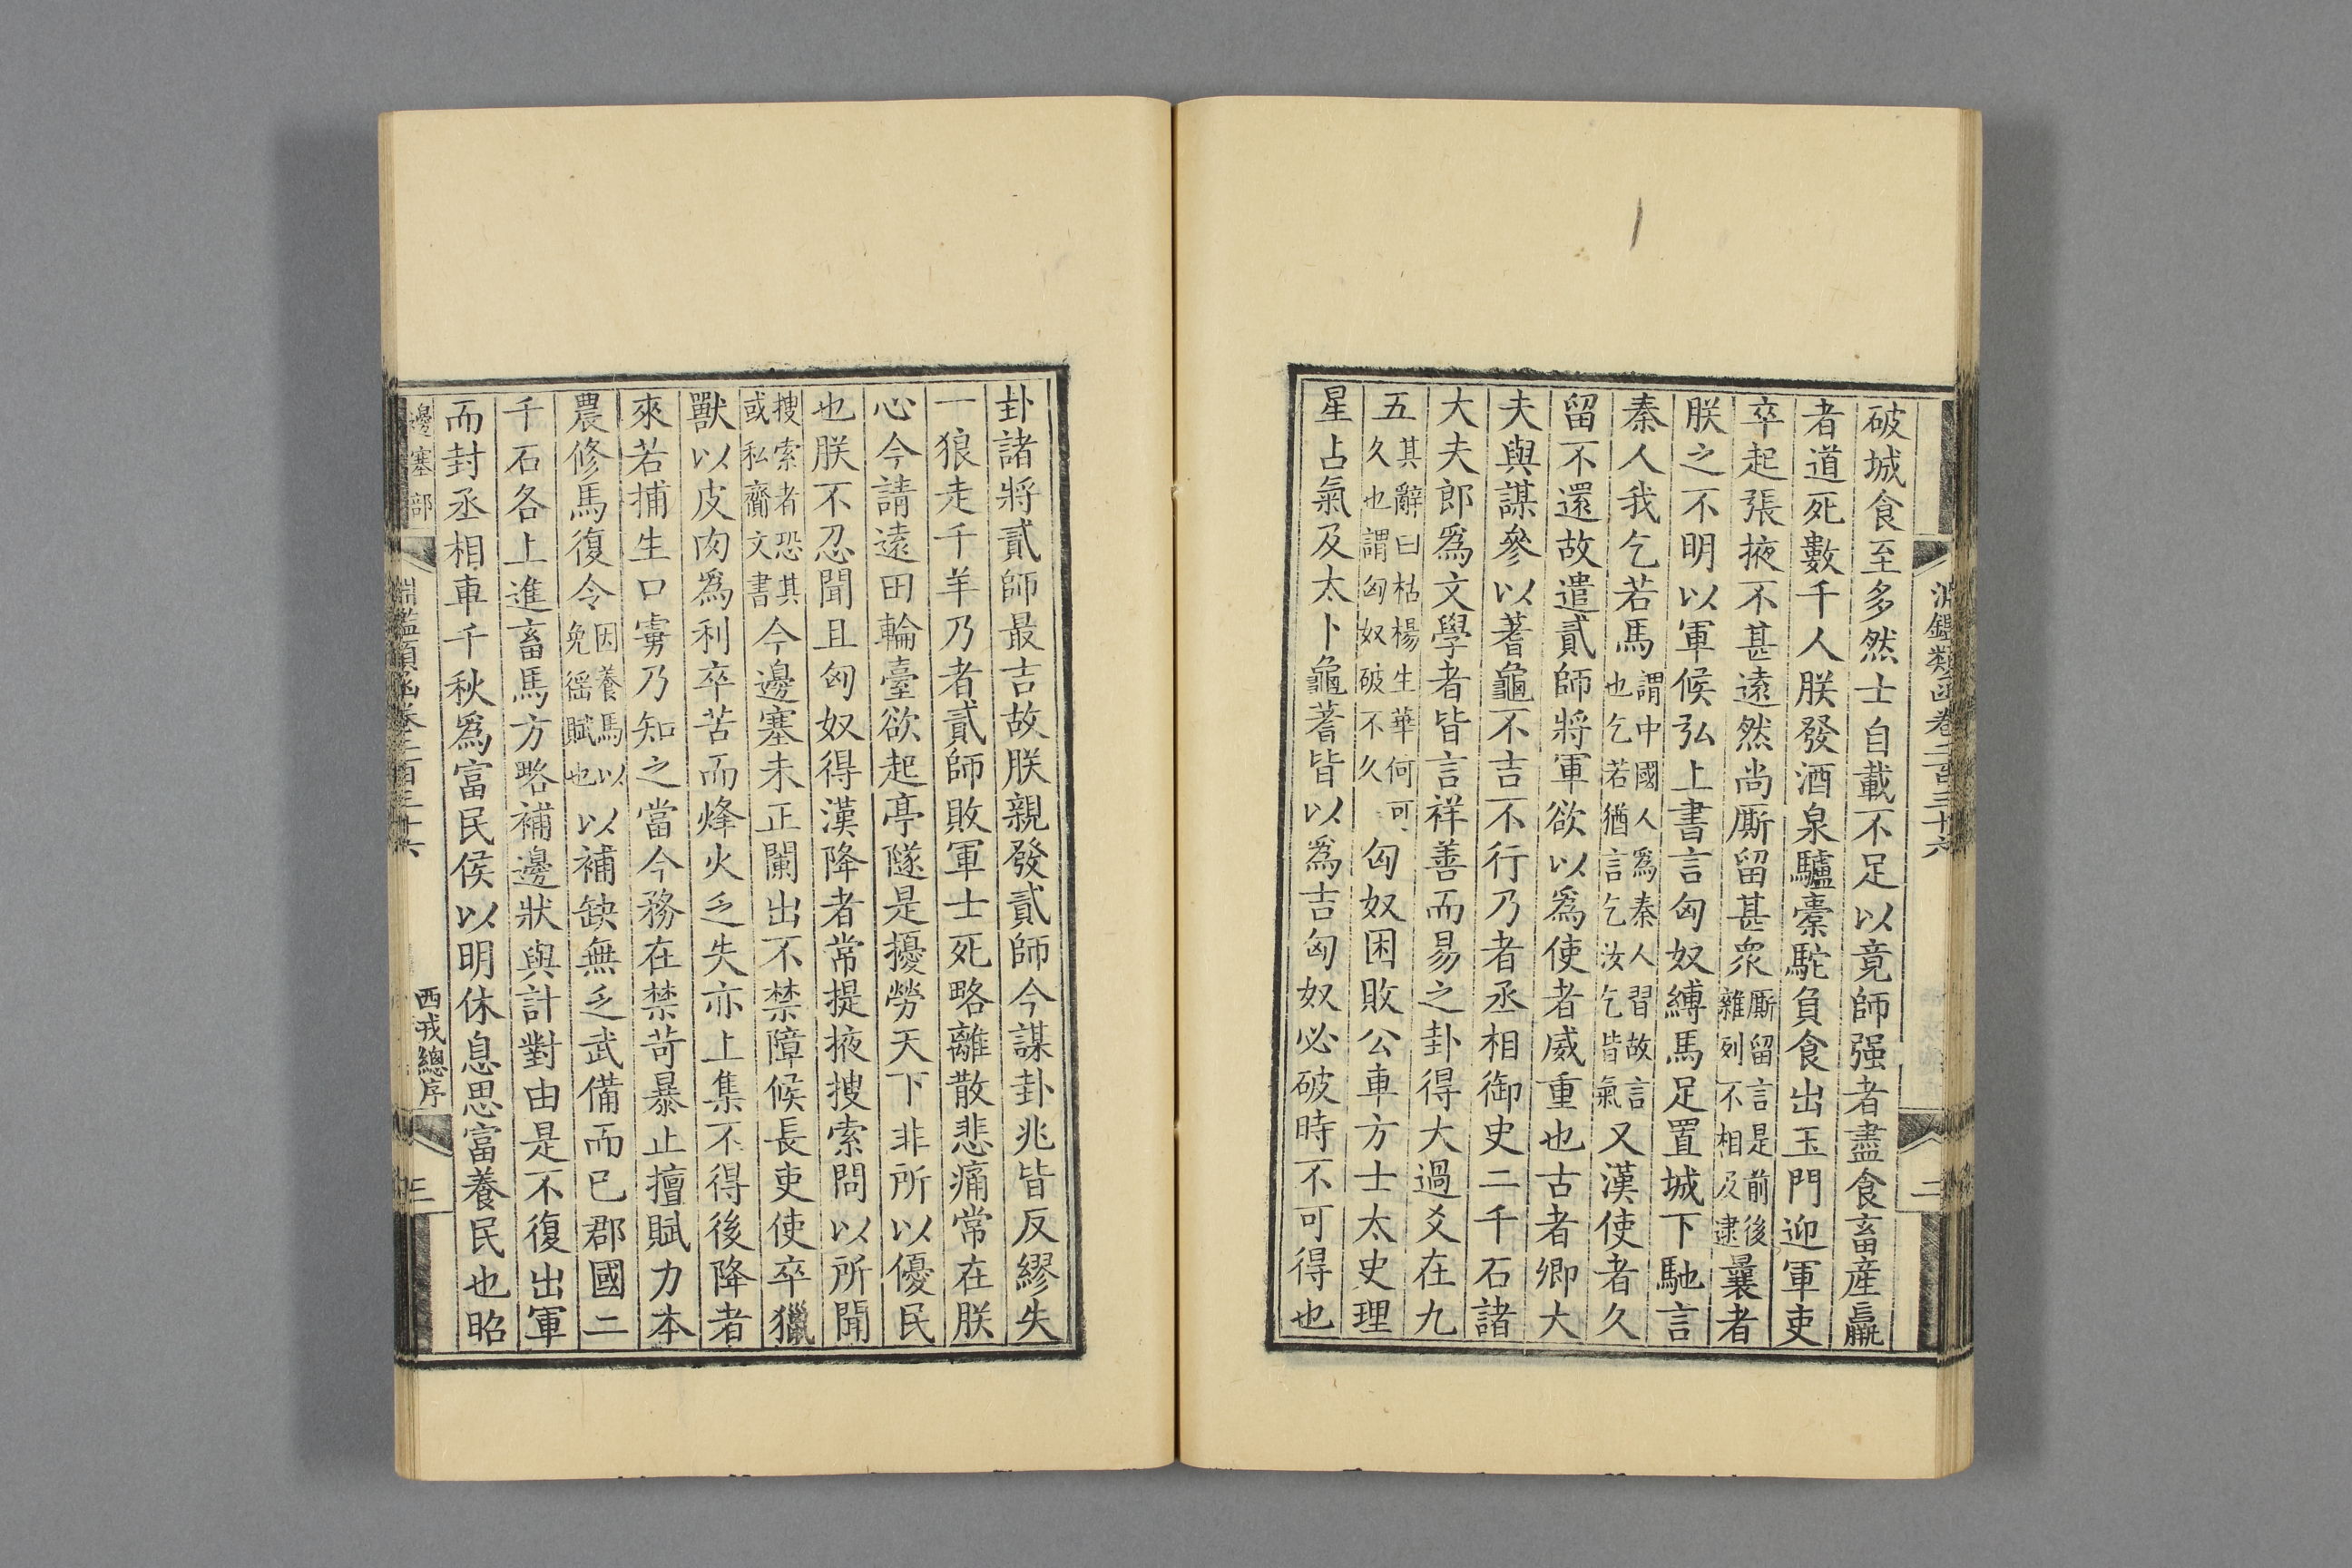 淵鑑類函卷二百三十六
二
破城食至多然士自載不足以竟師强者盡食畜產羸
者道死數千人朕發酒泉驢橐駝負食出玉門迎軍吏
卒起張掖不甚遠然尚厮留甚衆厮留言是前後雜列不相及逮曩者
朕之不明以軍候弘上書言匈奴縛馬足置城下馳言
秦人我乞若馬謂中國人爲秦人習故言也乞若猶言乞汝乞皆氣又漢使者久
留不還故遣貳師將軍欲以爲使者威重也古者卿大
夫與謀參以蓍龜不吉不行乃者丞相御史二千石諸
大夫郎爲文學者皆言祥善而易之卦得大過爻在九
五其辭曰枯楊生華何可久也謂匈奴破不久匈奴困敗公車方士太史理
星占氣及太卜龜蓍皆以爲吉匈奴必破時不可得也
卦諸將貳師最吉故朕親發貳師今謀卦兆皆反繆失
一狼走千羊乃者貳師敗軍士死略離散悲痛常在朕
心今請遠田輪臺欲起亭隧是擾勞天下非所以優民
也朕不忍聞且匈奴得漢降者常提掖搜索問以所聞
搜索者恐其或私齎文書今邊塞未正闌出不禁障候長吏使卒獵
獸以皮肉爲利卒苦而烽火乏失亦上集不得後降者
來若捕生口虜乃知之當今務在禁苛暴止擅賦力本
農修馬復令因養馬以免徭賦也以補缺無乏武備而已郡國二
千石各上進畜馬方略補邊狀與計對由是不復出軍
而封丞相車千秋爲富民侯以明休息思富養民也昭
邊塞部
淵鑑類函卷二百三十六
西戎總序
三